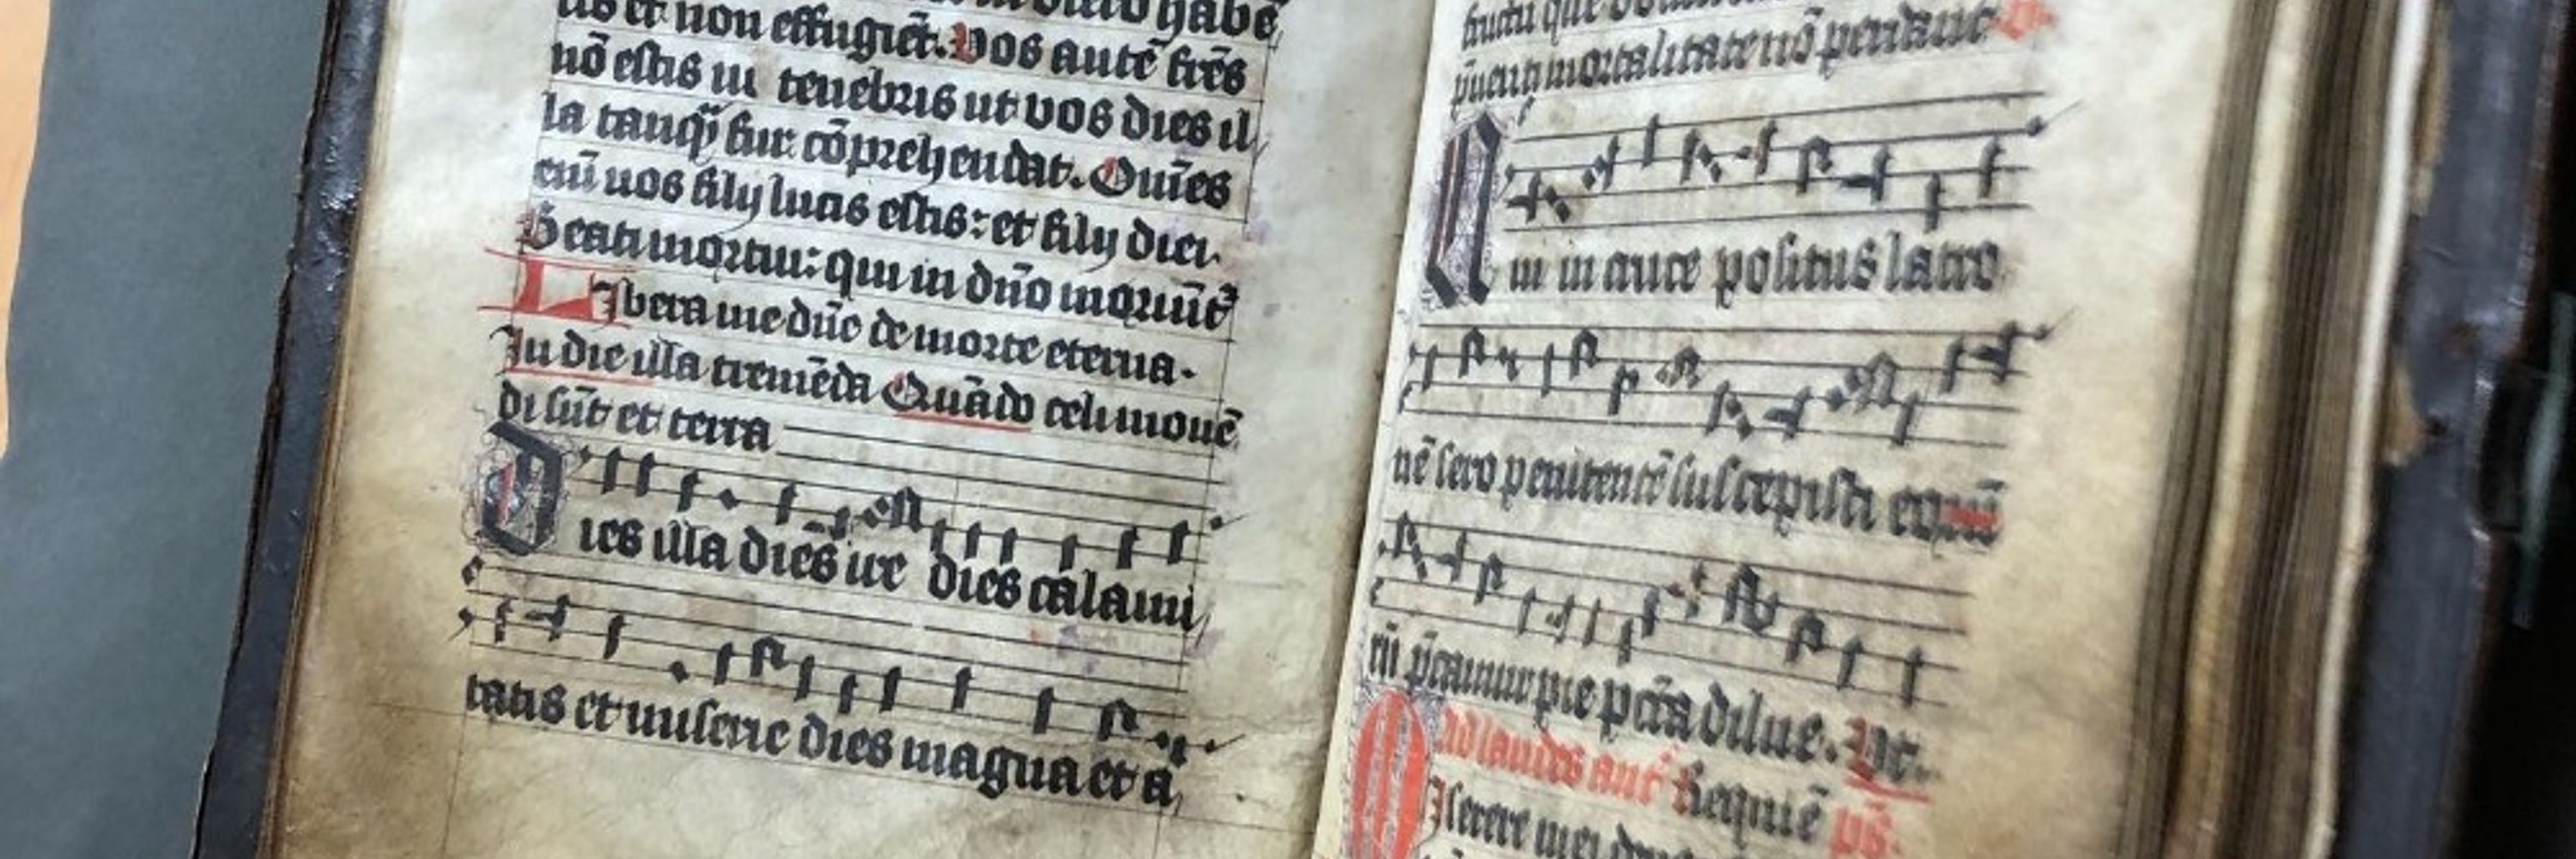 tis et non effugiēt. Vos autē frēs
nō estis in tenebris ut vos dies il
la tanq̃ fur cōprehendat. Om̄es
em̄ vos filij lucis estis: et filij diei.
Beati mortui: qui in dn̄o moriūt᷑
Libera me dn̄e de morte eterna.
In die illa tremēda Quādo celi mouē
di sūt et terra
Dies illa dies ire dies calami
tatis et miserie dies magna et a
fructu que
mortalitate nō perdant
Qui in cruce positus latro
nē sero penitentē suscepisti eū
pie pctā dilue. Vt.
ad laudes ant̄ Requiē ps̄.
Miserere mei